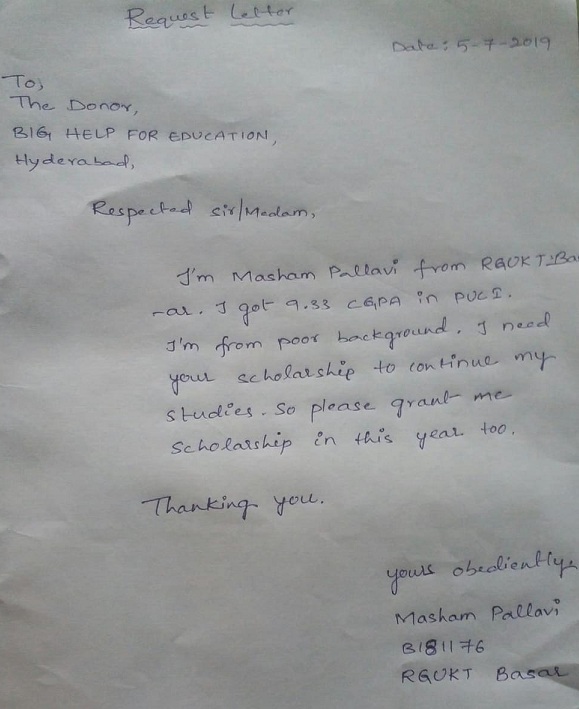 Request Letter
Date: 5-7-2019
To,
The Donor,
BIG HELP FOR EDUCATION,
Hyderabad,
Respected sir/Medam,
I'm Masham Pallavi from RGUKT-Ba
-ar. I got 9.33 CGPA in PUC I.
I'm from poor background. I need
your scholarship to continue my
studies. So please grant me
scholarship in this year too.
Thanking you.
yours obediently,
Masham Pallavi
B181176
RGUKT Basar